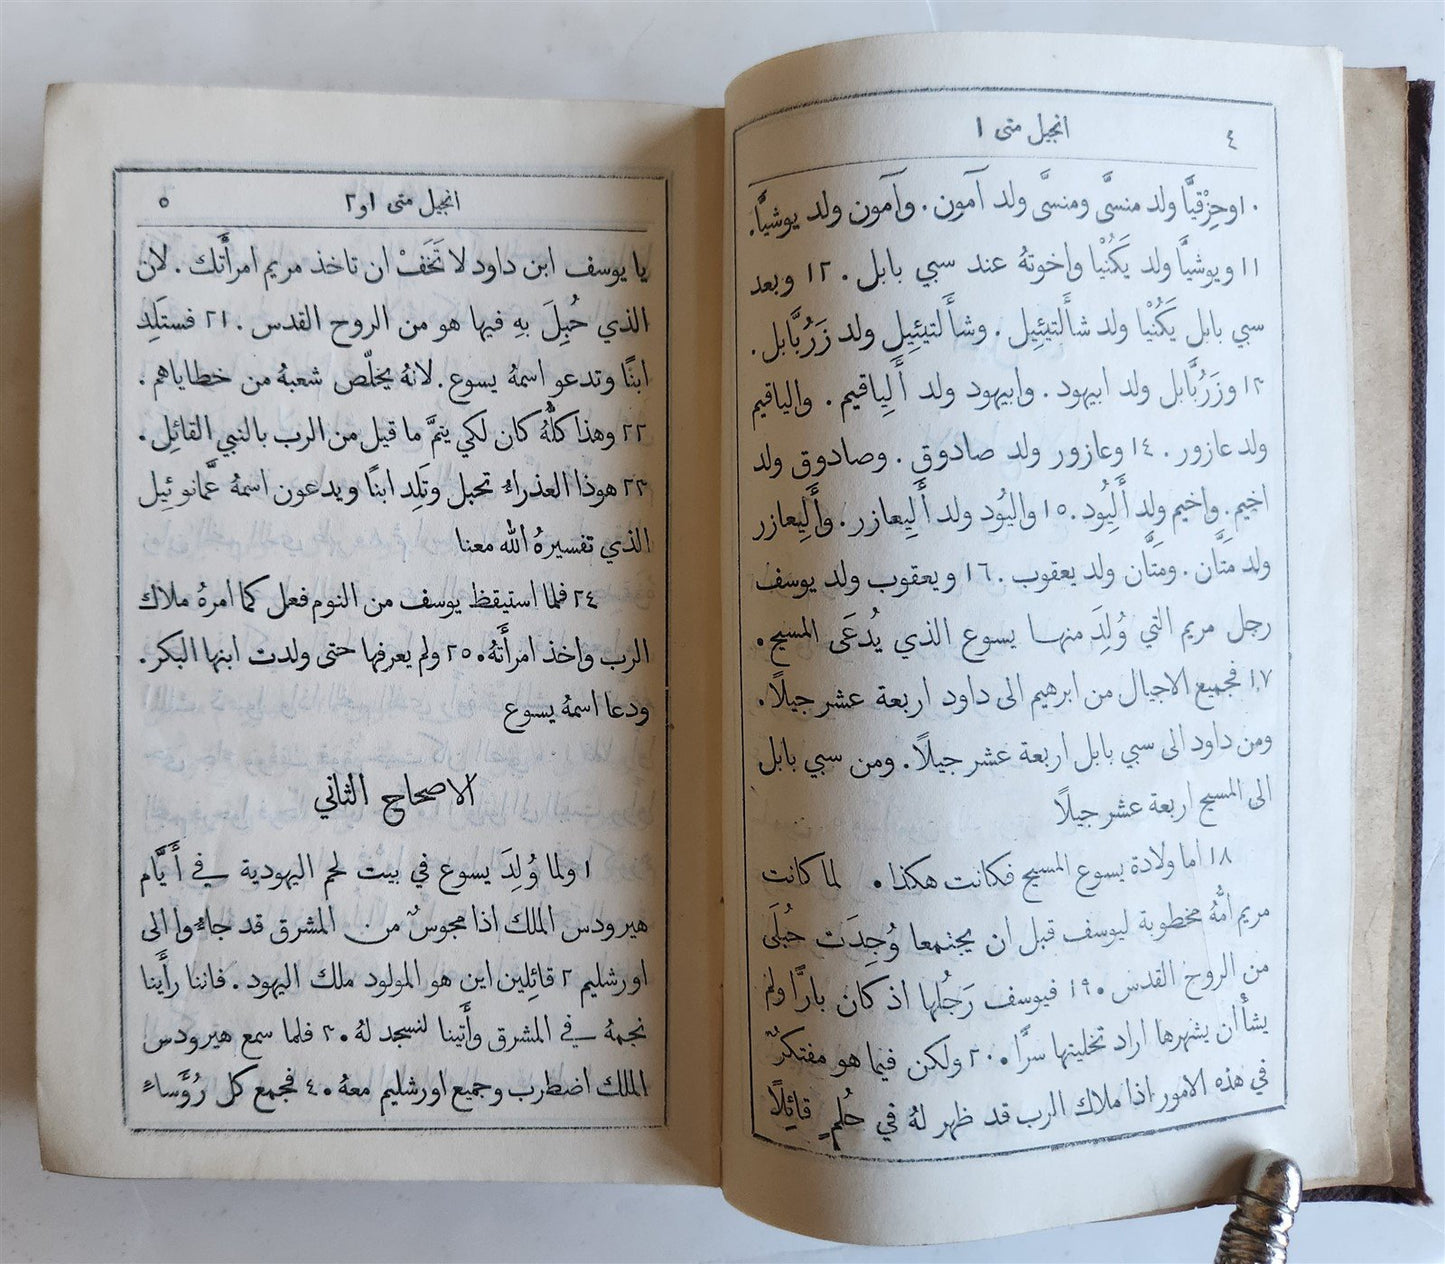 ٤
انجيل متى ١
١٠ وحِزْقيَّا ولد منسَّى ومنسَّى ولد آمون. وآمون ولد يوشيَّا.
١١ ويوشيَّا ولد يَكُنْيا واخوتهُ عند سبي بابل. ١٢ وبعد
سبي بابل يَكُنْيا ولد شأَلتيئِيل. وشأَلتيئِيل ولد زَرُبَّابل.
١٣ وزَرُبَّابل ولد ابيهود. وابيهود ولد أَلِياقيم. والياقيم
ولد عازور. ١٤ وعازور ولد صادوق. وصادوق ولد
اخيم. واخيم ولد أَلِيُود. ١٥ واليُود ولد أَلِيعازر. وأَلِيعازر
ولد متَّان. ومتَّان ولد يعقوب. ١٦ ويعقوب ولد يوسف
رجل مريم التي وُلِدَ منها يسوع الذي يُدعَى المسيح.
١٧ فجميع الاجيال من ابرهيم الى داود اربعة عشر جيلًا.
ومن داود الى سبي بابل اربعة عشر جيلًا. ومن سبي بابل
الى المسيح اربعة عشر جيلًا
١٨ اما ولادة يسوع المسيح فكانت هكذا. لما كانت
مريم امُّهُ مخطوبة ليوسف قبل ان يجتمعا وُجِدَت حُبلَى
من الروح القدس. ١٩ فيوسف رَجُلها اذ كان بارًّا ولم
يشأْ ان يشهرها اراد تخليتها سرًّا. ٢٠ ولكن فيما هو مفتكرٌ
في هذه الامور اذا ملاك الرب قد ظهر لهُ في حُلمٍ قائِلًا
انجيل متى ١ و٢
٥
يا يوسف ابن داود لا تَخَفْ ان تاخذ مريم امرأَتك. لان
الذي حُبِلَ بهِ فيها هو من الروح القدس. ٢١ فستلِد
ابنًا وتدعو اسمهُ يسوع. لانهُ يخلّص شعبهُ من خطاياهم.
٢٢ وهذا كلُّهُ كان لكي يتمَّ ما قيل من الرب بالنبي القائِل.
٢٣ هوذا العذراءُ تحبل وتَلِد ابنًا ويدعون اسمهُ عمَّانوئِيل
الذي تفسيرهُ الله معنا
٢٤ فلما استيقظ يوسف من النوم فعل كما امرهُ ملاك
الرب واخذ امرأَتهُ. ٢٥ ولم يعرفها حتى ولدت ابنها البكر.
ودعا اسمهُ يسوع
الاصحاح الثاني
١ ولما وُلِدَ يسوع في بيت لحم اليهودية في أَيَّام
هيرودس الملك اذا مجوسٌ من المشرق قد جاءُوا الى
اورشليم ٢ قائِلين اين هو المولود ملك اليهود. فاننا رأَينا
نجمهُ في المشرق وأَتينا لنسجد لهُ. ٣ فلما سمع هيرودس
الملك اضطرب وجميع اورشليم معهُ. ٤ فجمع كل رُؤَساءِ